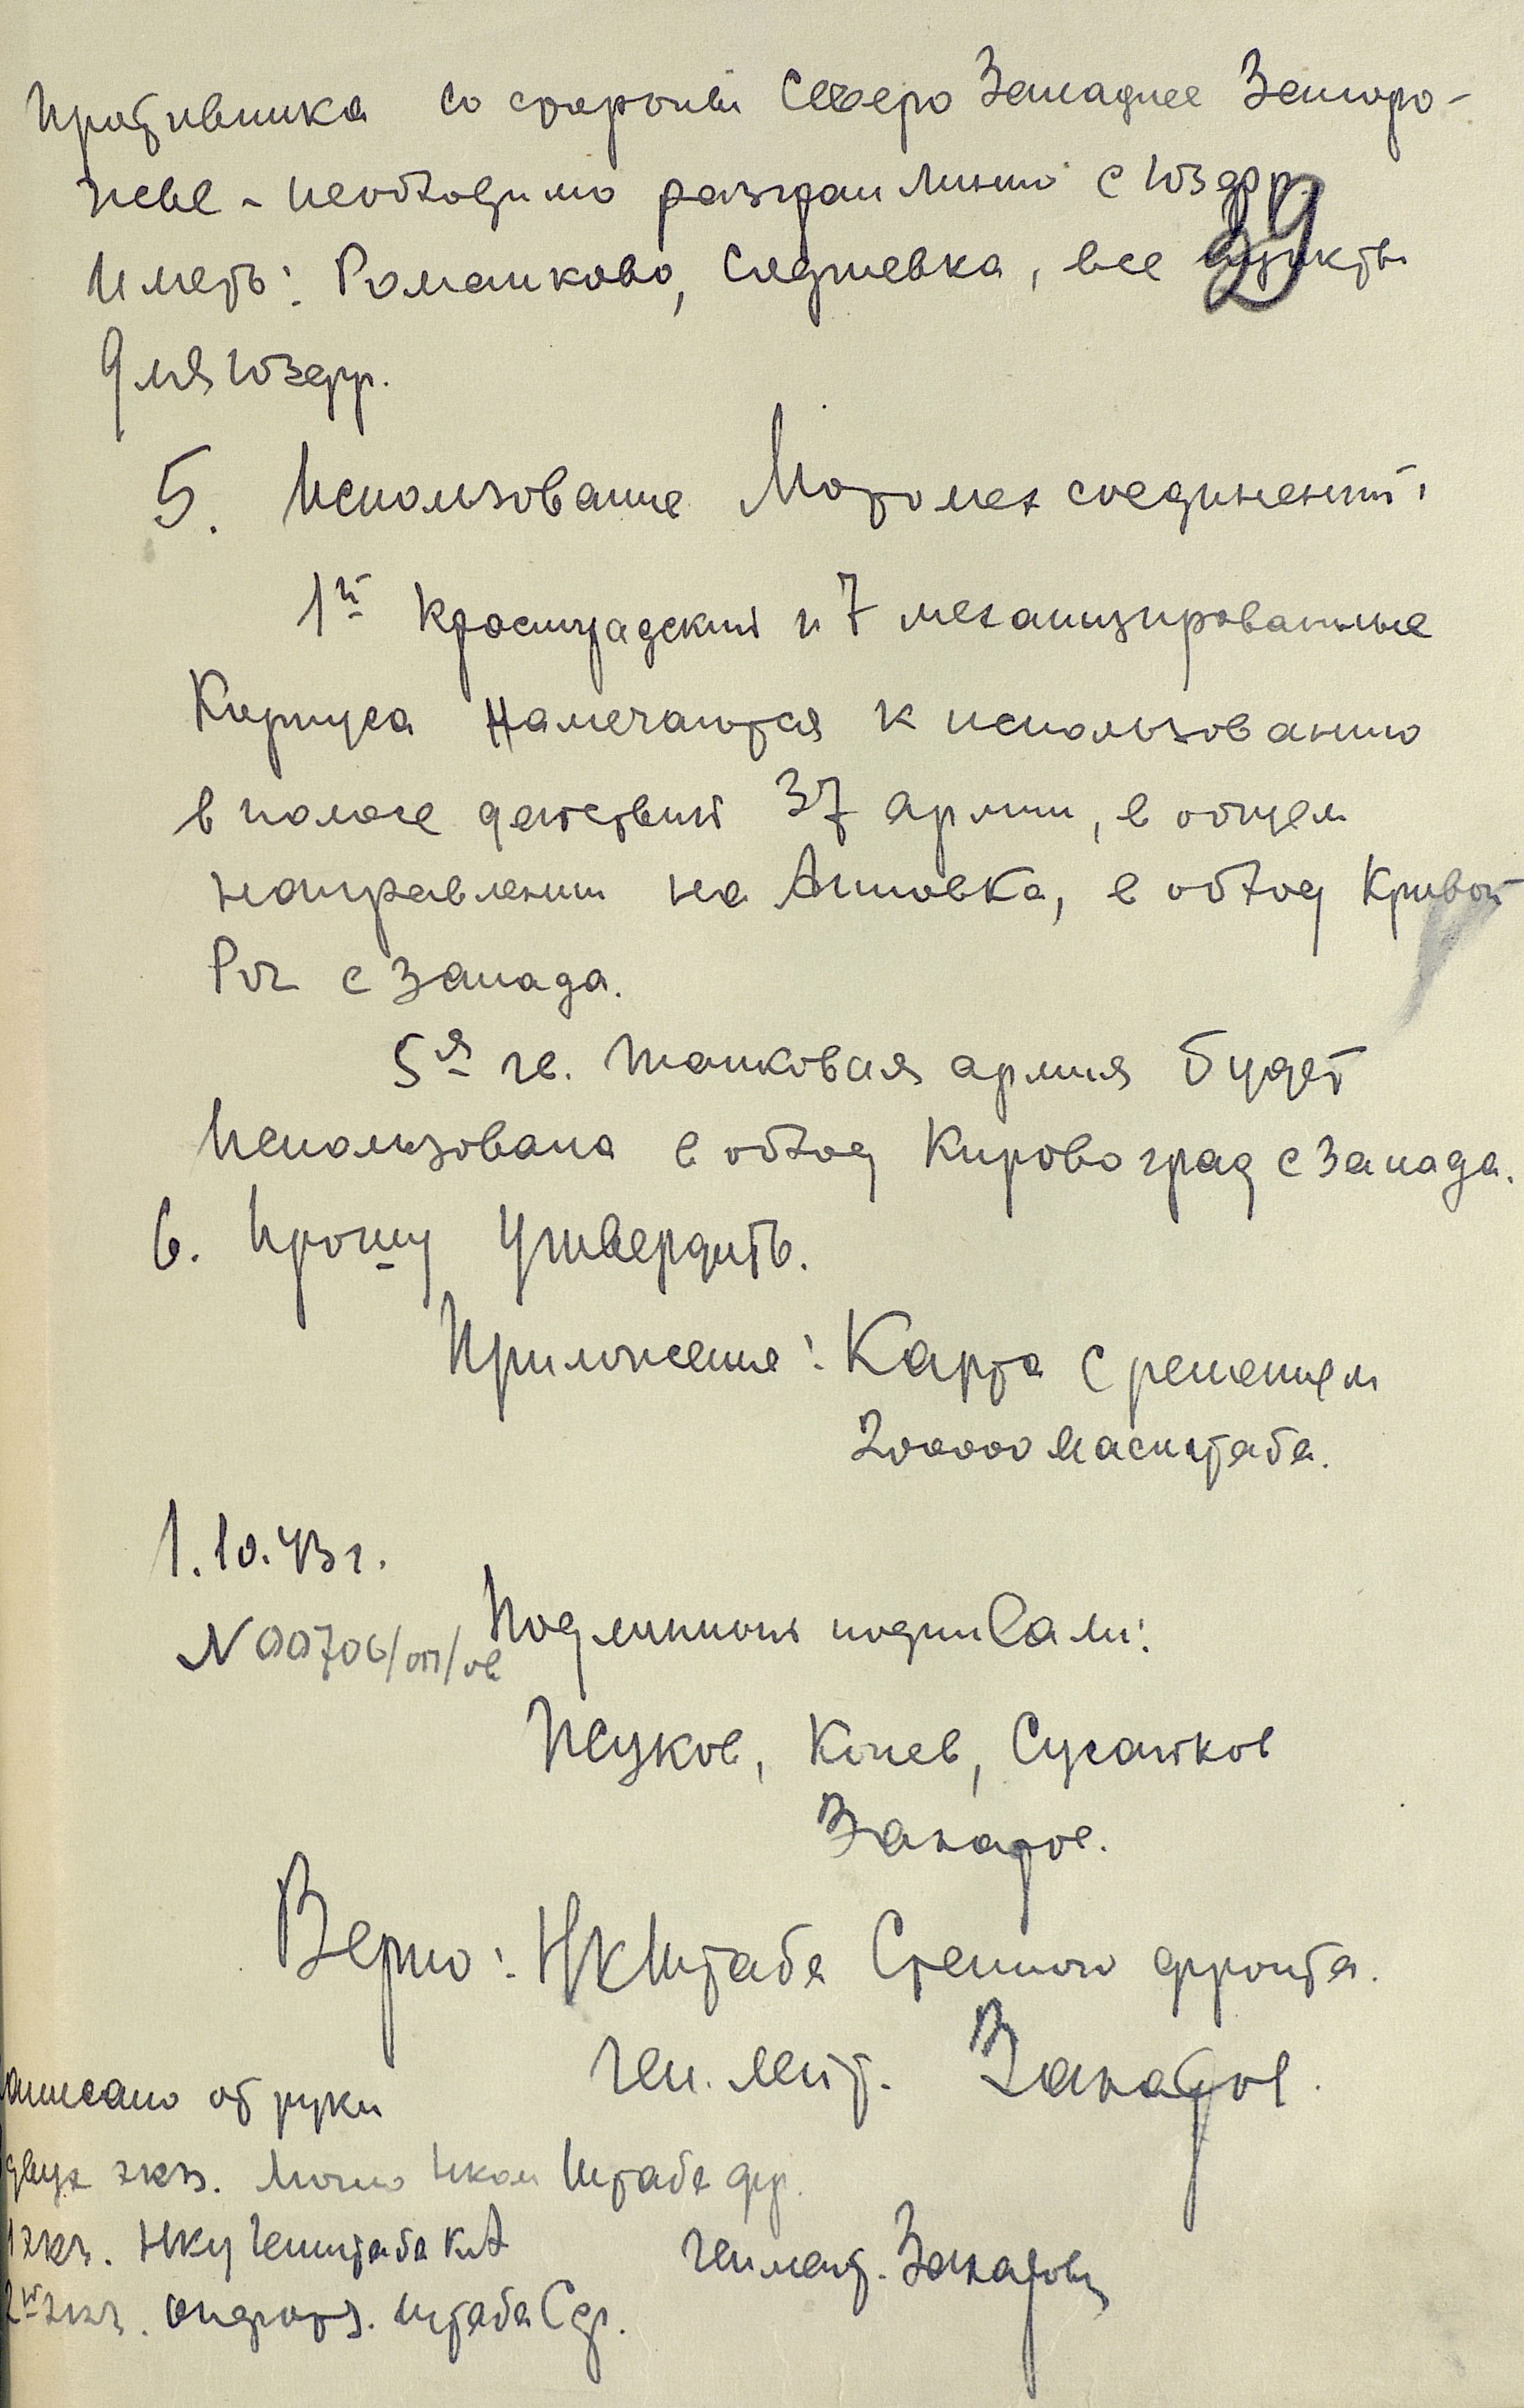 Противника со стороны Северо Западнее Запоро-
жье - необходимо разгран линию с ЮЗфр.
29
Иметь: Романково, Софиевка, все пункты
для ЮЗфр.
5. Использование Мотомех соединений:
1й Красноградский и 7 механизированные
Корпуса намечаются к использованию
в полосе действий 37 армии, в общем
направлении на Анновка, в обход Кривой
Рог с запада.
5я гв. танковая армия будет
Использована в обход Кировоград с запада.
6. Прошу утвердить.
Приложение: Карта с решением
200000 масштаба.
1.10.43 г.
N 00706/оп/ов
Подлинный подписали:
Жуков, Конев, Сусайков
Захаров.
Верно: НКШтаба Степного фронта.
Ген. лейт. Захаров.
аписано от руки
двух экз. Лично Нком Штаба фр.
1 экз. НКу Генштаба КА
генлейт. Захаровым
2й экз. опер отд. штаба Сф.